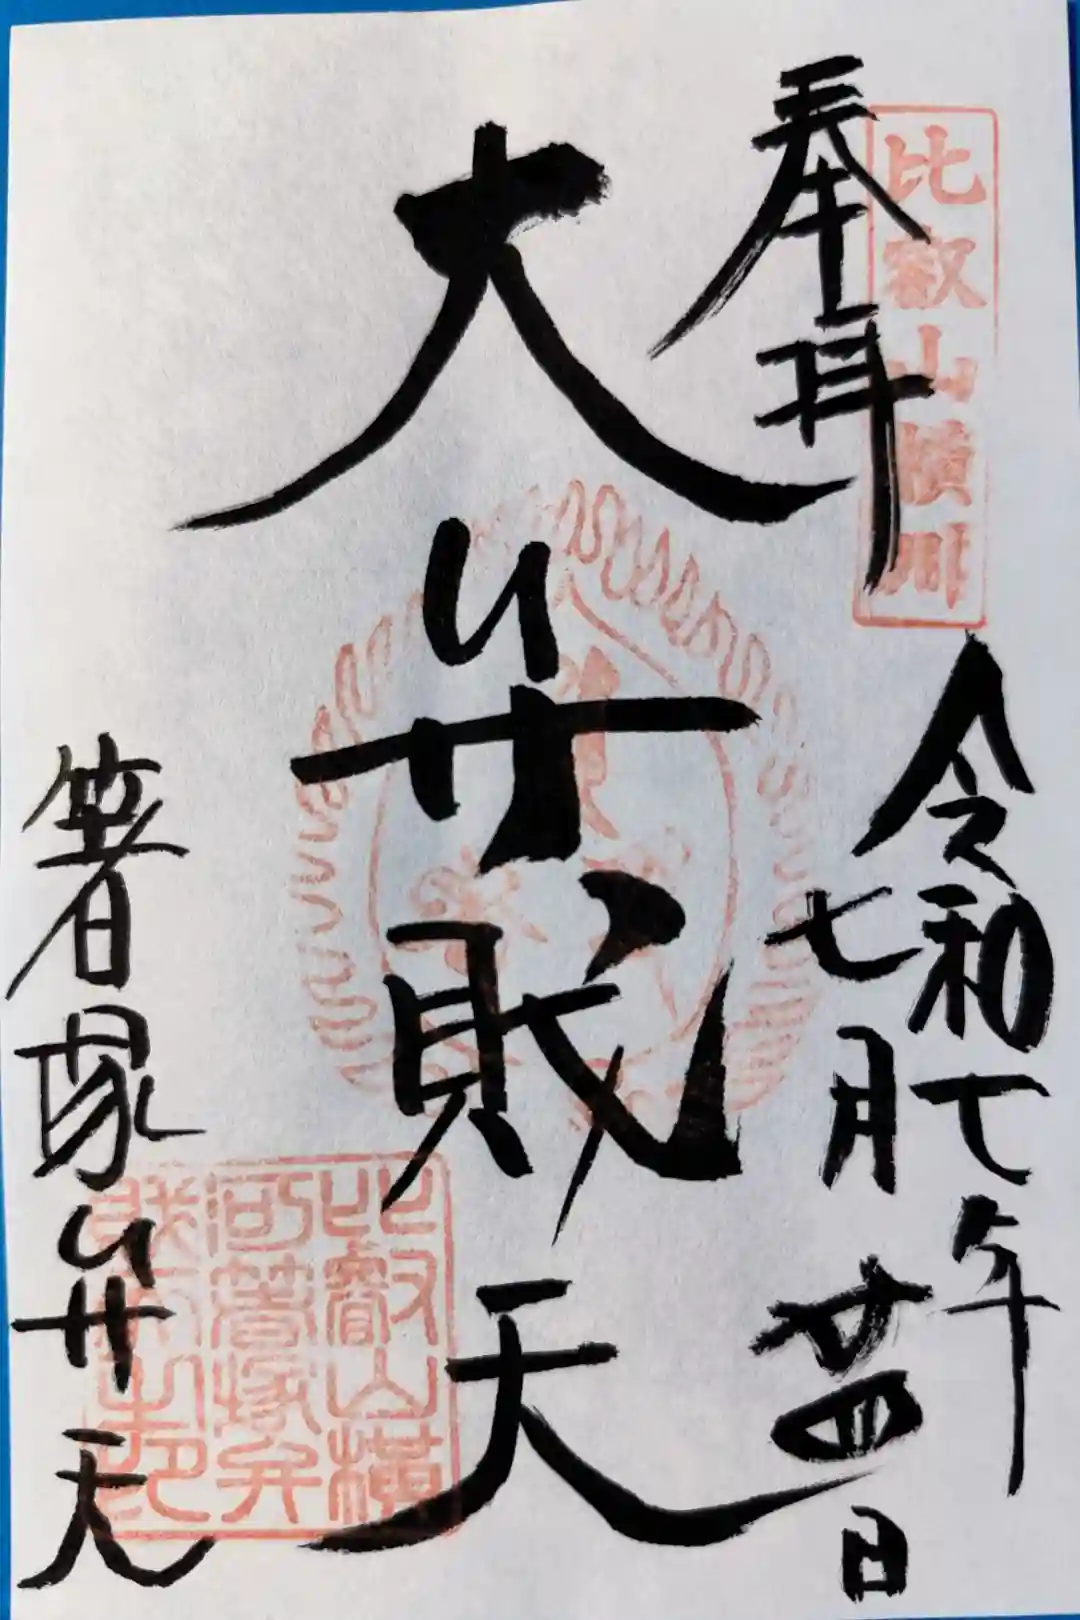 奉拝
比叡山横川
令和七年
七月廿四日
大弁財天
箸塚弁天
比叡山横
河箸塚弁